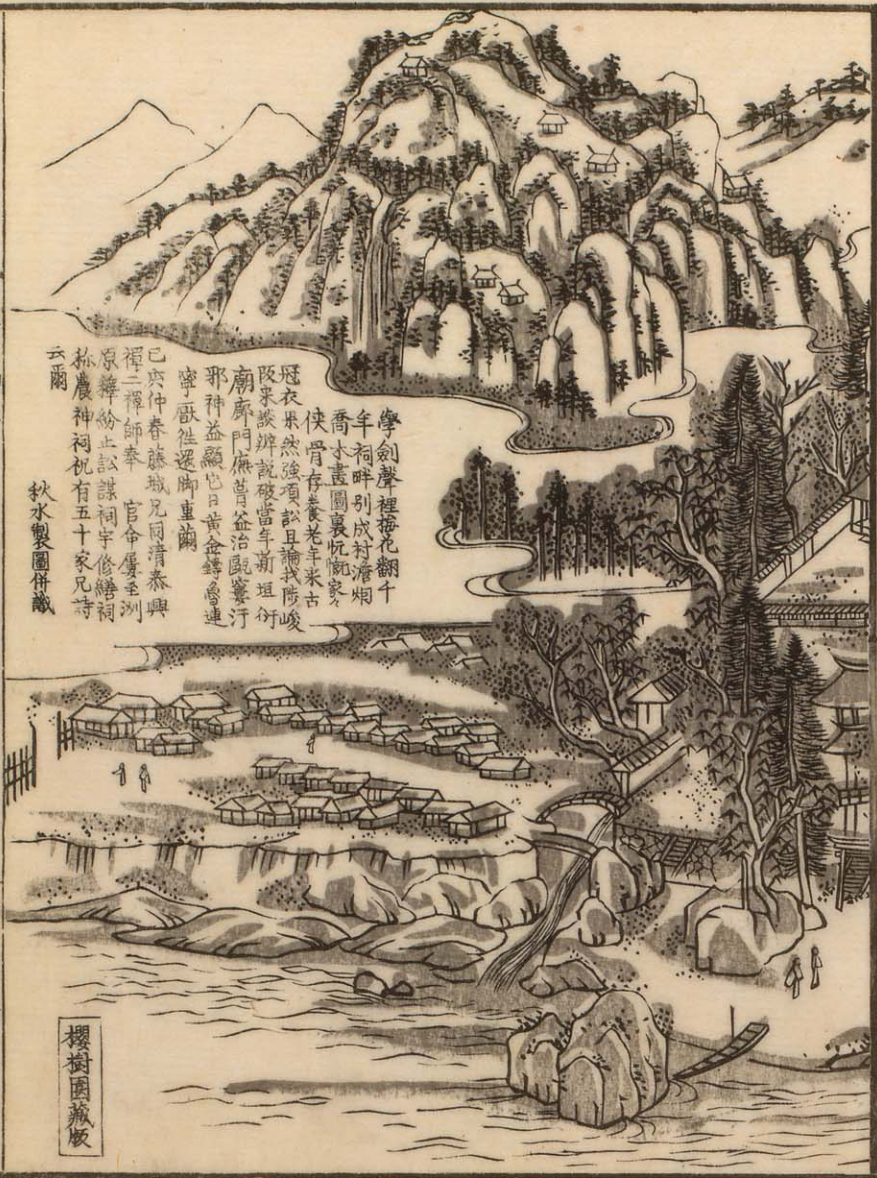 學劍聲裡梅花翻千
年祠畔別成村澹烟
喬木畫圖裏忼慨家々
俠骨存養老年來古
冠衣果然強項訟且論我陟峻
阪来談辨説破當年垣衍
廟廊門廡葺益治汙
邪神益顯它日黄金鑄魯連
寧厭徃還脚重繭
己亥仲春藤城兄同清泰興
禪二禪師奉 官命屢至洲
原紛止訟謀祠宇修繕祠
称農神祠祝有五十家兄詩
云爾
秋水製圖併識
櫻樹園藏版